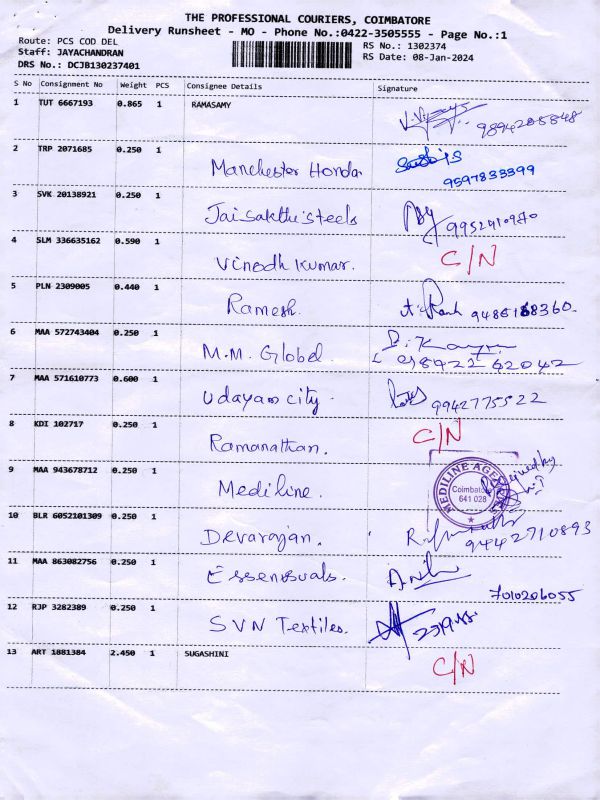 THE PROFESSIONAL COURIERS, COIMBATORE
Delivery Runsheet - MO - Phone No.:0422-3505555 - Page No.:1
Route: PCS COD DEL
RS No.: 1302374
Staff: JAYACHANDRAN
RS Date: 08-Jan-2024
DRS No.: DCJB130237401
S No Consignment No Weight PCS Consignee Details Signature
1 TUT 6667193 0.865 1 RAMASAMY
9894205848
2 TRP 2071685 0.250 1 Manchester Honda
9597833399
3 SVK 20138921 0.250 1 Jai sakthi steels
4 SLM 336635162 0.590 1 Vinodh kumar. C/N
5 PLN 2309005 0.440 1 Ramesh.
6 MAA 572743404 0.250 1 M.M. Global
098422 62042
7 MAA 571610773 0.600 1 Udayam city. 9942775522
8 KDI 102717 0.250 1 Ramanathan. C/N
9 MAA 943678712 0.250 1 Mediline.
MEDILINE AGENCIES
Coimbatore
641 028
Received by
10 BLR 6052101309 0.250 1 Devarajan. 9442710893
11 MAA 863082756 0.250 1 Essensuals.
7010206055
12 RJP 3282389 0.250 1 SVN Textiles.
13 ART 1881384 2.450 1 SUGASHINI C/N